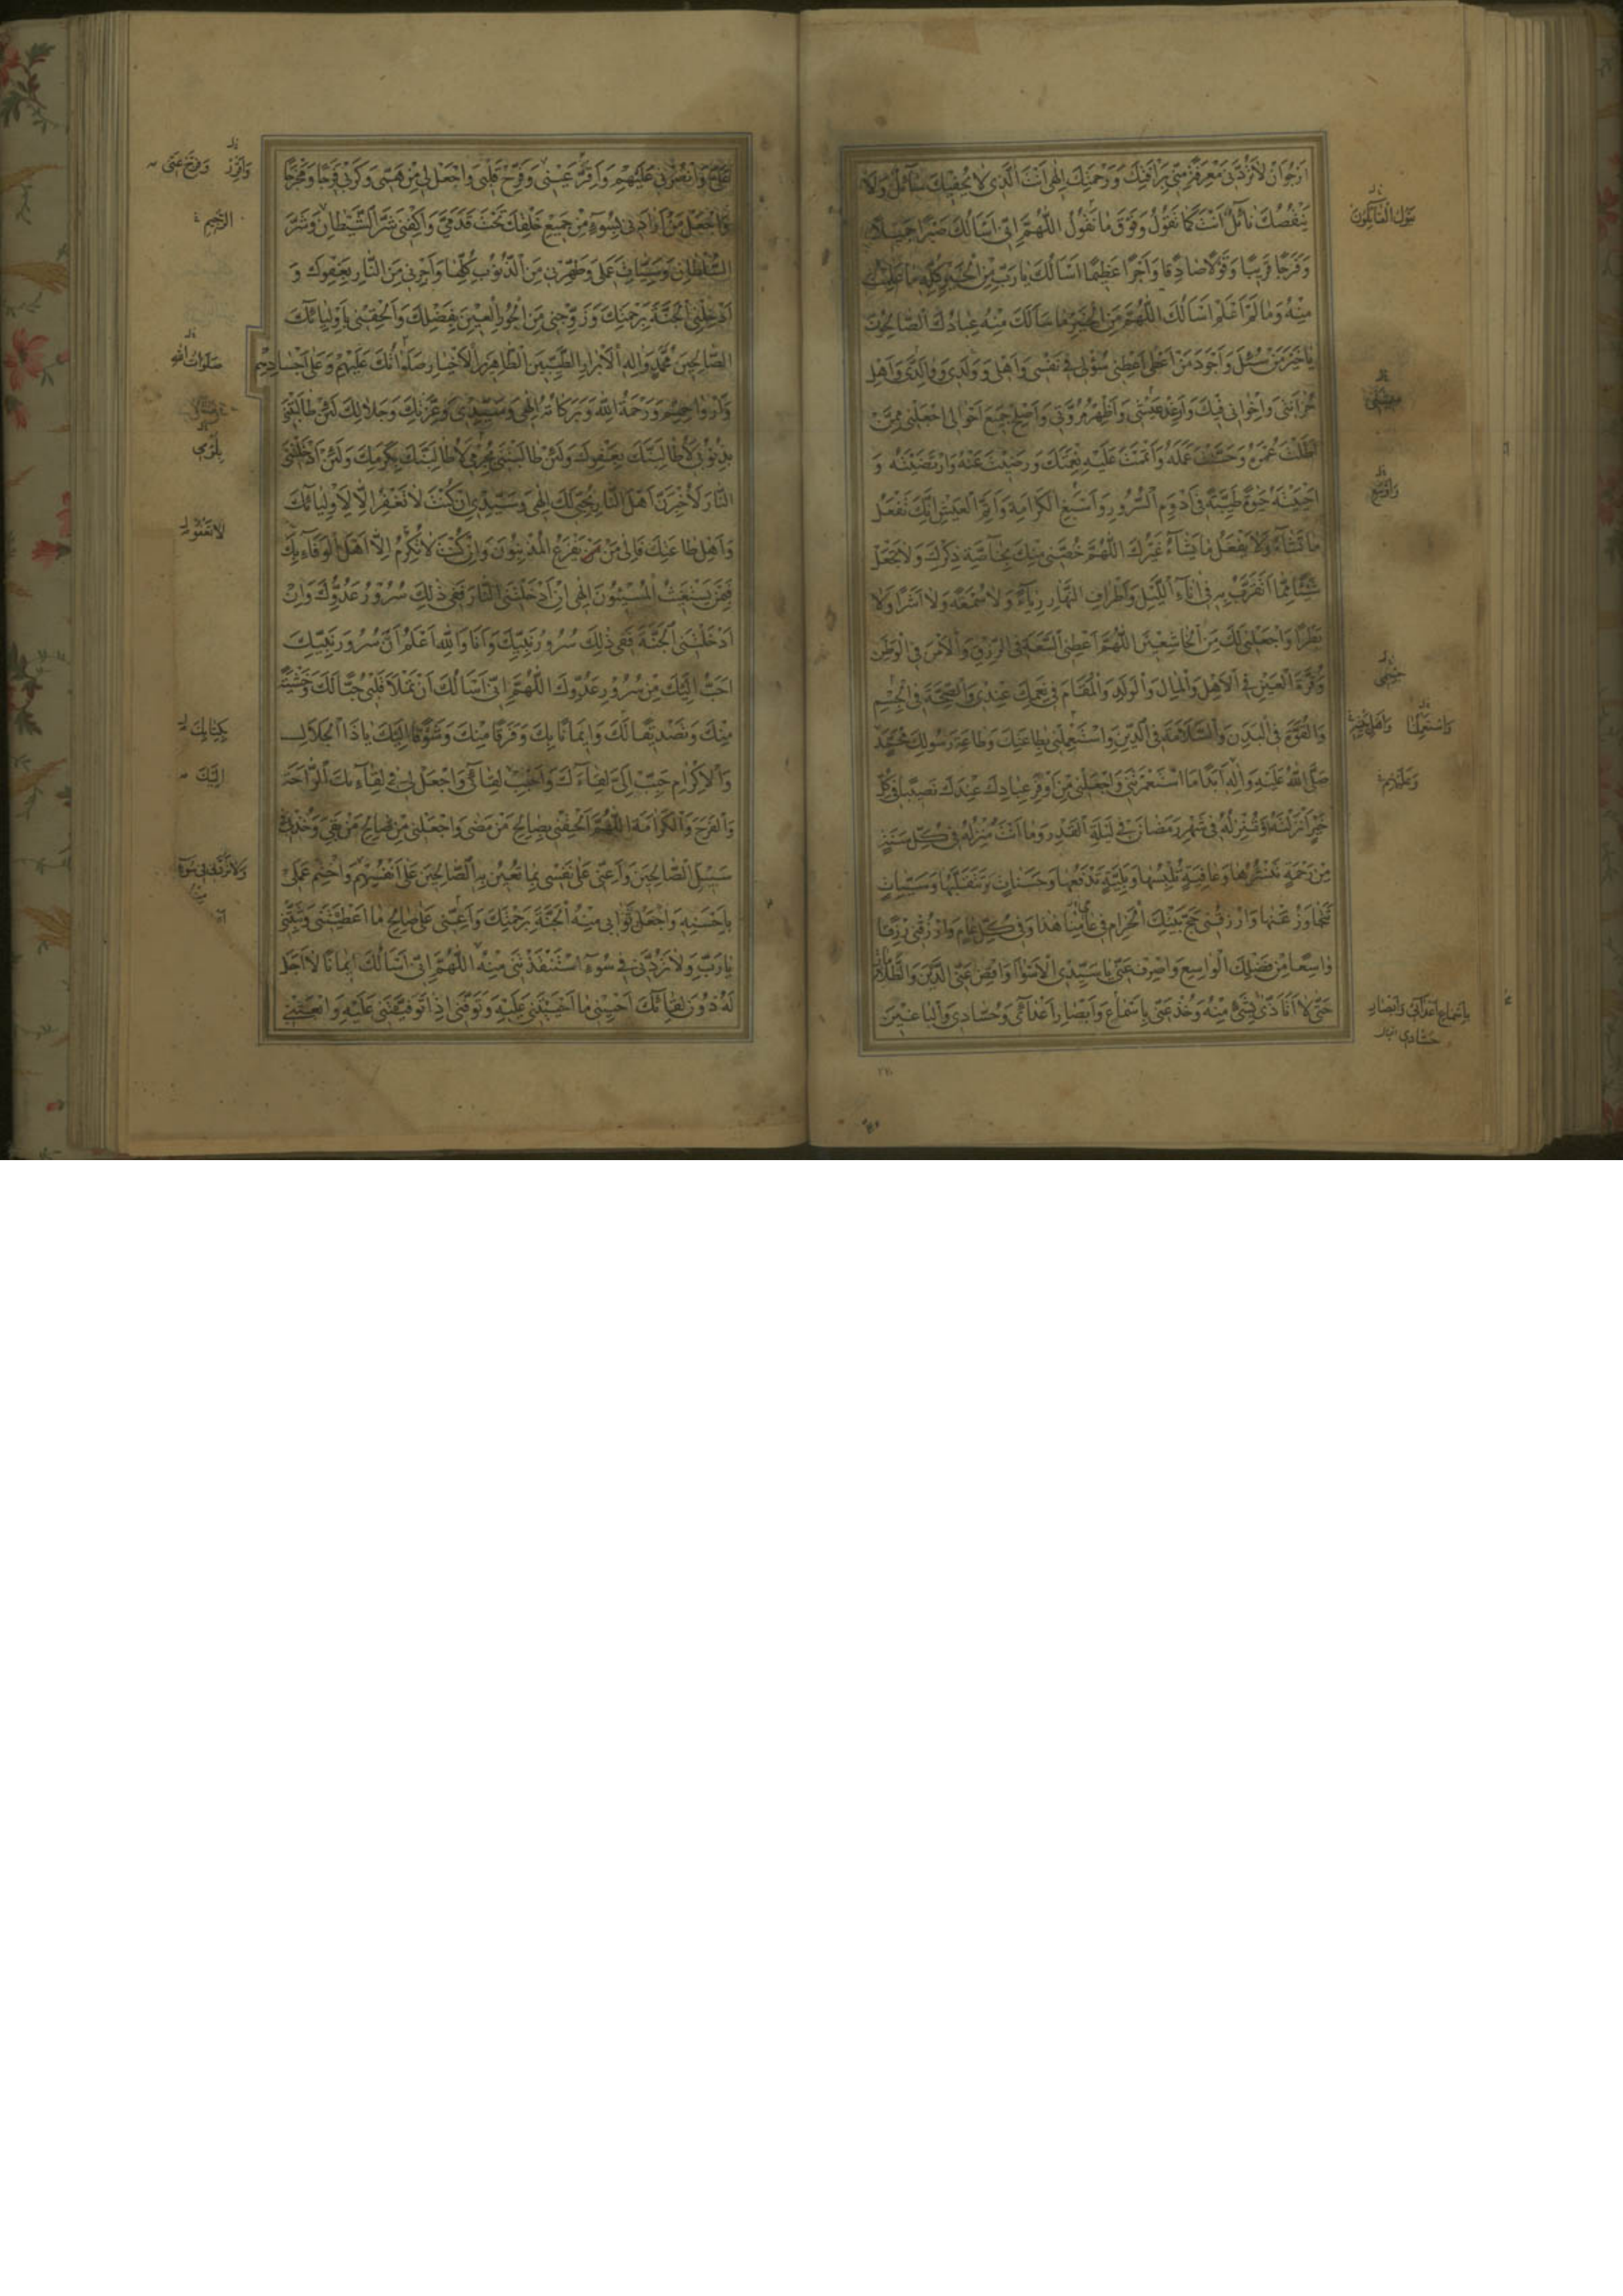 اَرْجُوْ اَنْ لَا تَرُدَّنِی مَعْرِفَتِی مِنْ رَأْفَتِكَ وَرَحْمَتِكَ اِلٰهِی اَنْتَ الَّذِی لَا يُحْفِيكَ سَآئِلٌ وَلَا
يَنْقُصُكَ نَآئِلٌ اَنْتَ كَمَا تَقُولُ وَفَوْقَ مَا نَقُولُ اللّٰهُمَّ اِنِّی اَسْاَلُكَ صَبْرًا جَمِيلًا
وَفَرَجًا قَرِيبًا وَقَوْلًا صَادِقًا وَاَجْرًا عَظِيمًا اَسْاَلُكَ يَا رَبِّ مِنَ الْخَيْرِ كُلِّهِ مَا عَلِمْتُ
مِنْهُ وَمَا لَمْ اَعْلَمْ اَسْاَلُكَ اللّٰهُمَّ مِنَ الْخَيْرِ مَا سَاَلَكَ مِنْهُ عِبَادُكَ الصَّالِحُونَ
يَا خَيْرَ مَنْ سُئِلَ وَاَجْوَدَ مَنْ اَعْطٰی اَعْطِنِی سُؤْلِی فِی نَفْسِی وَاَهْلِی وَوَلَدِی وَوَالِدَیَّ وَاَهْلِ
حُزَانَتِی وَاِخْوَانِی فِيكَ وَاَرْغِدْ عَيْشِی وَاَظْهِرْ مُرُوَّتِی وَاَصْلِحْ جَمِيعَ اَحْوَالِی اجْعَلْنِی مِمَّنْ
اَطَلْتَ عُمْرَهُ وَحَسَّنْتَ عَمَلَهُ وَاَتْمَمْتَ عَلَيْهِ نِعْمَتَكَ وَرَضِيتَ عَنْهُ وَارْتَضَيْتَهُ وَ
اَحْيَيْتَهُ حَيٰوةً طَيِّبَةً فِی اَدْوَمِ السُّرُورِ وَاَسْبَغِ الْكَرَامَةِ وَاَتَمِّ الْعَيْشِ اِنَّكَ تَفْعَلُ
مَا تَشَآءُ وَلَا يَفْعَلُ مَا يَشَآءُ غَيْرُكَ اللّٰهُمَّ خُصَّنِی مِنْكَ بِخَاصَّةِ ذِكْرِكَ وَلَا تَجْعَلْ
شَيْئًا مِمَّا اَتَقَرَّبُ بِهِ فِی اٰنَآءِ اللَّيْلِ وَاَطْرَافِ النَّهَارِ رِيَآءً وَلَا سُمْعَةً وَلَا اَشَرًا وَلَا
بَطَرًا وَاجْعَلْنِی لَكَ مِنَ الْخَاشِعِينَ اللّٰهُمَّ اَعْطِنِی السَّعَةَ فِی الرِّزْقِ وَالْاَمْنَ فِی الْوَطَنِ
وَقُرَّةَ الْعَيْنِ فِی الْاَهْلِ وَالْمَالِ وَالْوَلَدِ وَالْمُقَامَ فِی نِعَمِكَ عِنْدِی وَالصِّحَّةَ فِی الْجِسْمِ
وَالْقُوَّةَ فِی الْبَدَنِ وَالسَّلَامَةَ فِی الدِّينِ وَاسْتَعْمِلْنِی بِطَاعَتِكَ وَطَاعَةِ رَسُولِكَ مُحَمَّدٍ
صَلَّی اللّٰهُ عَلَيْهِ وَاٰلِهِ اَبَدًا مَا اسْتَعْمَرْتَنِی وَاجْعَلْنِی مِنْ اَوْفَرِ عِبَادِكَ عِنْدَكَ نَصِيبًا فِی كُلِّ
خَيْرٍ اَنْزَلْتَهُ وَتُنْزِلُهُ فِی شَهْرِ رَمَضَانَ فِی لَيْلَةِ الْقَدْرِ وَمَا اَنْتَ مُنْزِلُهُ فِی كُلِّ سَنَةٍ
مِنْ رَحْمَةٍ تَنْشُرُهَا وَعَافِيَةٍ تُلْبِسُهَا وَبَلِيَّةٍ تَدْفَعُهَا وَحَسَنَاتٍ تَتَقَبَّلُهَا وَسَيِّئَاتٍ
تَتَجَاوَزُ عَنْهَا وَارْزُقْنِی حَجَّ بَيْتِكَ الْحَرَامِ فِی عَامِنَا هٰذَا وَفِی كُلِّ عَامٍ وَارْزُقْنِی رِزْقًا
وَاسِعًا مِنْ فَضْلِكَ الْوَاسِعِ وَاصْرِفْ عَنِّی يَا سَيِّدِی الْاَسْوَاءَ وَاقْضِ عَنِّی الدَّيْنَ وَالظُّلَامَاتِ
حَتّٰی لَا اَتَاَذّٰی بِشَیْءٍ مِنْهُ وَخُذْ عَنِّی بِاَسْمَاعِ وَاَبْصَارِ اَعْدَآئِی وَحُسَّادِی وَالْبَاغِينَ
عَلَیَّ وَانْصُرْنِی عَلَيْهِمْ وَاَقِرَّ عَيْنِی وَفَرِّحْ قَلْبِی وَاجْعَلْ لِی مِنْ هَمِّی وَكَرْبِی فَرَجًا وَمَخْرَجًا
وَاجْعَلْ مَنْ اَرَادَنِی بِسُوءٍ مِنْ جَمِيعِ خَلْقِكَ تَحْتَ قَدَمَیَّ وَاكْفِنِی شَرَّ الشَّيْطَانِ وَشَرَّ
السُّلْطَانِ وَسَيِّئَاتِ عَمَلِی وَطَهِّرْنِی مِنَ الذُّنُوبِ كُلِّهَا وَاَجِرْنِی مِنَ النَّارِ بِعَفْوِكَ وَ
اَدْخِلْنِی الْجَنَّةَ بِرَحْمَتِكَ وَزَوِّجْنِی مِنَ الْحُورِ الْعِينِ بِفَضْلِكَ وَاَلْحِقْنِی بِاَوْلِيَآئِكَ
الصَّالِحِينَ مُحَمَّدٍ وَاٰلِهِ الْاَبْرَارِ الطَّيِّبِينَ الطَّاهِرِينَ الْاَخْيَارِ صَلَوَاتُكَ عَلَيْهِمْ وَعَلٰی اَجْسَادِهِمْ
وَاَرْوَاحِهِمْ وَرَحْمَةُ اللّٰهِ وَبَرَكَاتُهُ اِلٰهِی وَسَيِّدِی وَعِزَّتِكَ وَجَلَالِكَ لَئِنْ طَالَبْتَنِی
بِذُنُوبِی لَاُطَالِبَنَّكَ بِعَفْوِكَ وَلَئِنْ طَالَبْتَنِی بِجُرْمِی لَاُطَالِبَنَّكَ بِكَرَمِكَ وَلَئِنْ اَدْخَلْتَنِی
النَّارَ لَاُخْبِرَنَّ اَهْلَ النَّارِ بِحُبِّی لَكَ اِلٰهِی وَسَيِّدِی اِنْ كُنْتَ لَا تَغْفِرُ اِلَّا لِاَوْلِيَآئِكَ
وَاَهْلِ طَاعَتِكَ فَاِلٰی مَنْ يَفْزَعُ الْمُذْنِبُونَ وَاِنْ كُنْتَ لَا تُكْرِمُ اِلَّا اَهْلَ الْوَفَآءِ بِكَ
فَبِمَنْ يَسْتَغِيثُ الْمُسِيئُونَ اِلٰهِی اِنْ اَدْخَلْتَنِی النَّارَ فَفِی ذٰلِكَ سُرُورُ عَدُوِّكَ وَاِنْ
اَدْخَلْتَنِی الْجَنَّةَ فَفِی ذٰلِكَ سُرُورُ نَبِيِّكَ وَاَنَا وَاللّٰهِ اَعْلَمُ اَنَّ سُرُورَ نَبِيِّكَ
اَحَبُّ اِلَيْكَ مِنْ سُرُورِ عَدُوِّكَ اللّٰهُمَّ اِنِّی اَسْاَلُكَ اَنْ تَمْلَاَ قَلْبِی حُبًّا لَكَ وَخَشْيَةً
مِنْكَ وَتَصْدِيقًا لَكَ وَاِيمَانًا بِكَ وَفَرَقًا مِنْكَ وَشَوْقًا اِلَيْكَ يَا ذَا الْجَلَالِ
وَالْاِكْرَامِ حَبِّبْ اِلَیَّ لِقَآءَكَ وَاَحْبِبْ لِقَآئِی وَاجْعَلْ لِی فِی لِقَآئِكَ الرَّاحَةَ
وَالْفَرَجَ وَالْكَرَامَةَ اللّٰهُمَّ اَلْحِقْنِی بِصَالِحِ مَنْ مَضٰی وَاجْعَلْنِی مِنْ صَالِحِ مَنْ بَقِیَ وَخُذْ بِی
سَبِيلَ الصَّالِحِينَ وَاَعِنِّی عَلٰی نَفْسِی بِمَا تُعِينُ بِهِ الصَّالِحِينَ عَلٰی اَنْفُسِهِمْ وَاخْتِمْ عَمَلِی
بِاَحْسَنِهِ وَاجْعَلْ ثَوَابِی مِنْهُ الْجَنَّةَ بِرَحْمَتِكَ وَاَعِنِّی عَلٰی صَالِحِ مَا اَعْطَيْتَنِی وَثَبِّتْنِی
يَا رَبِّ وَلَا تَرُدَّنِی فِی سُوءٍ اسْتَنْقَذْتَنِی مِنْهُ اللّٰهُمَّ اِنِّی اَسْاَلُكَ اِيمَانًا لَا اَجَلَ
لَهُ دُونَ لِقَآئِكَ اَحْيِنِی مَا اَحْيَيْتَنِی عَلَيْهِ وَتَوَفَّنِی اِذَا تَوَفَّيْتَنِی عَلَيْهِ وَابْعَثْنِی